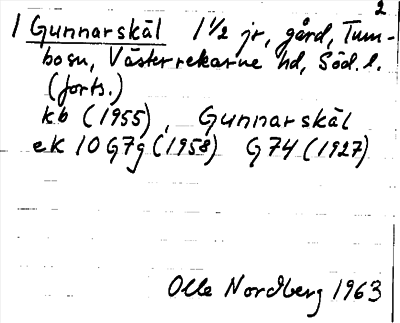 2
1 Gunnarskäl 1 1/2 jr, gård, Tum-
bo sn, Västerrekarne hd, Söd. l.
(forts.)
kb (1955), Gunnarskäl
ek 10 G7g (1958) G74 (1927)
Olle Nordberg 1963